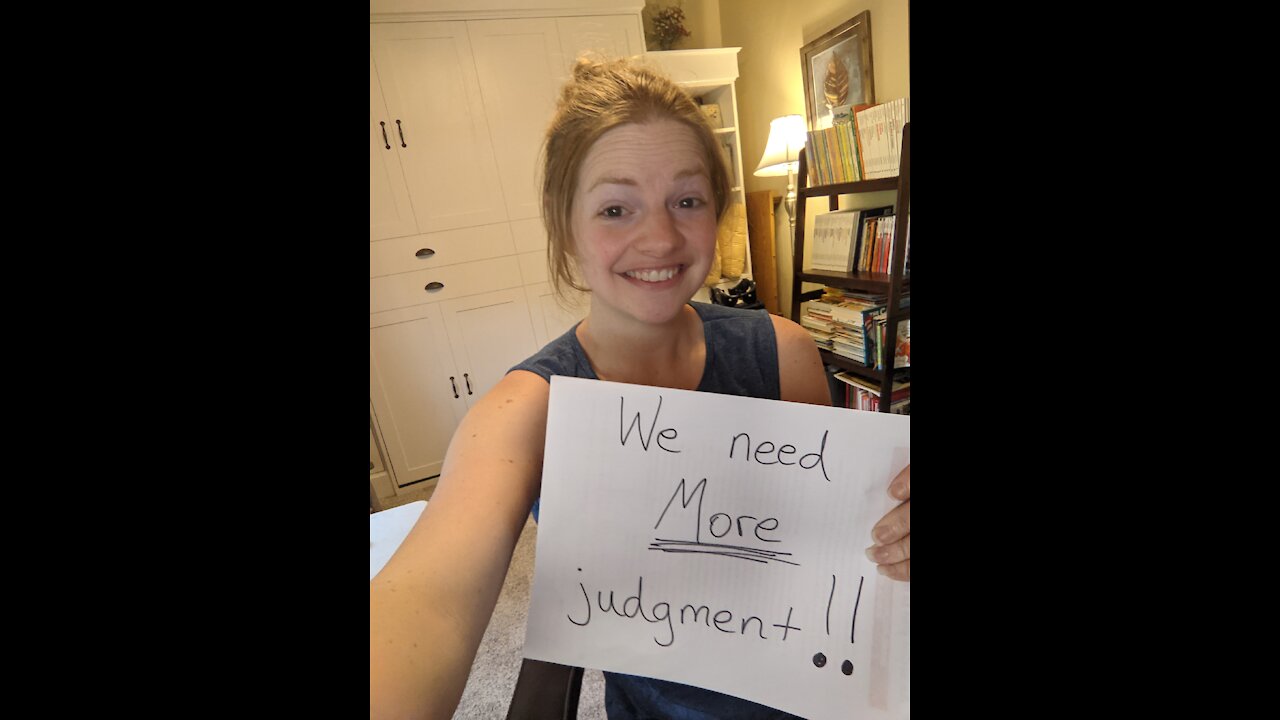 We need
More
judgment!!